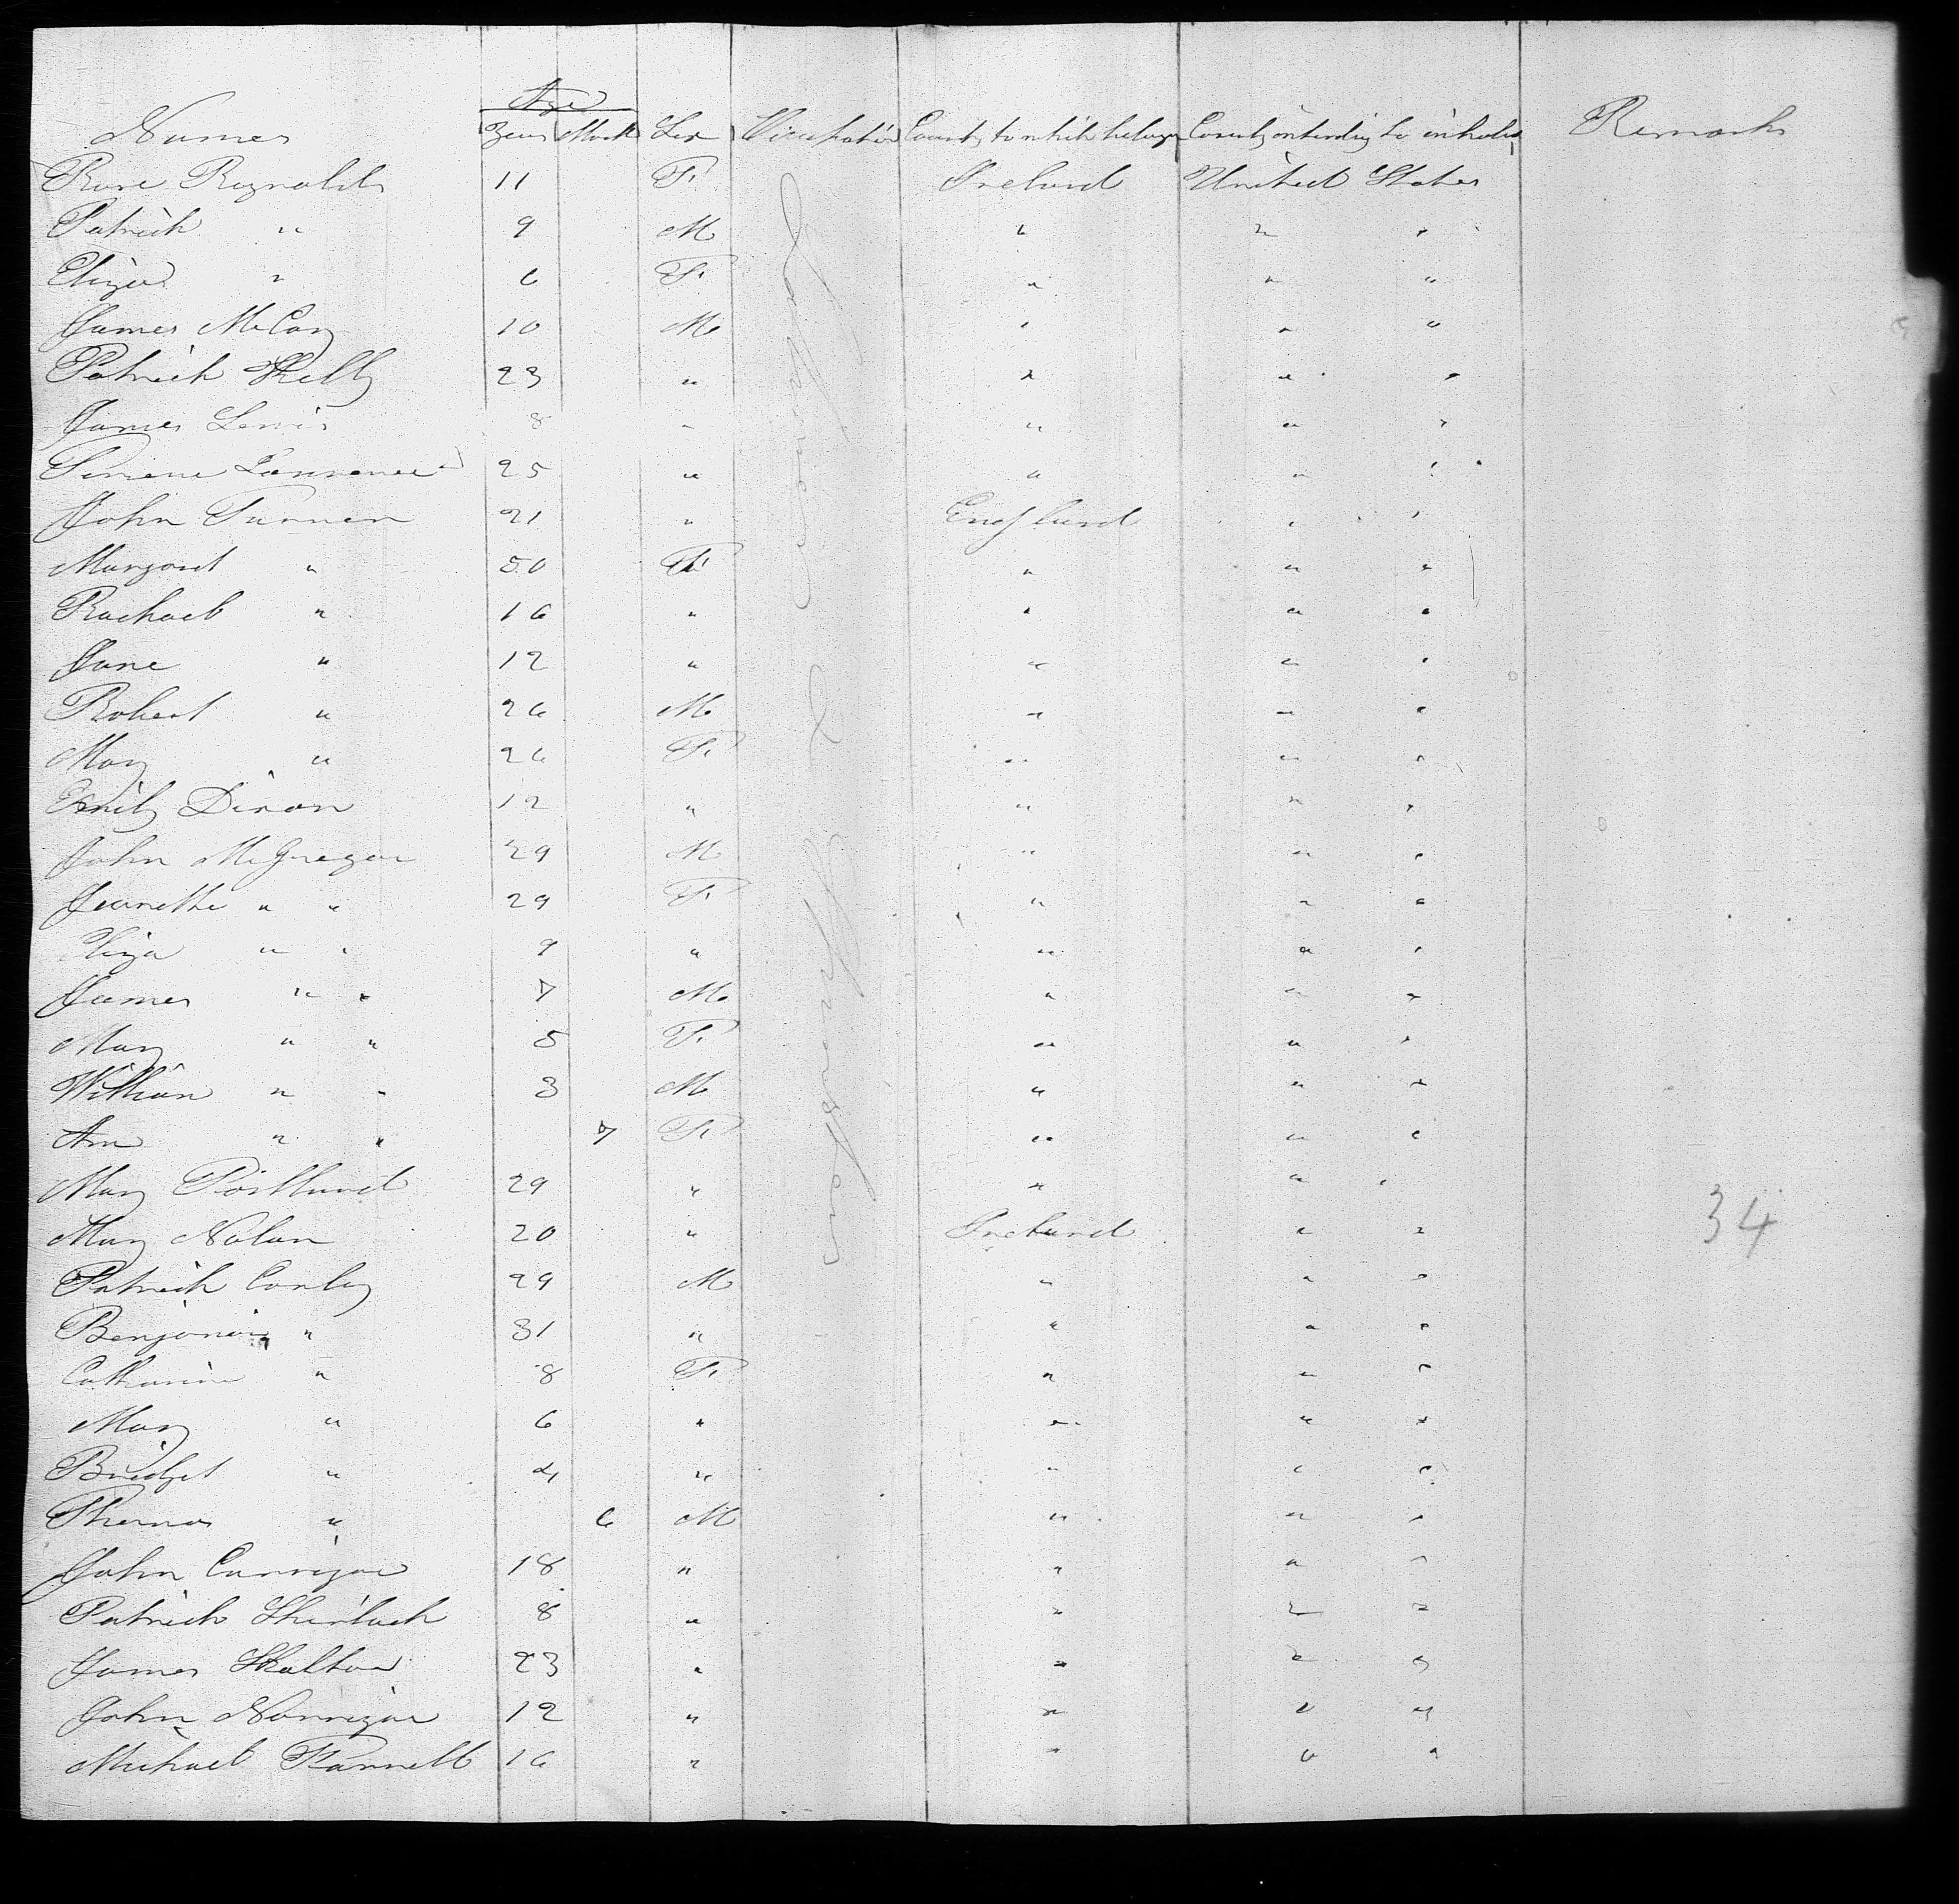 Age
Names Years Month Sex Occupation Country to which belong Country intending to inhabit Remarks
Rose Reynolds 11 F. Ireland United States
Patrick " 9 M " " "
Eliza " 6 F. " " "
James McCoy 10 M " " "
Patrick Kelly 23 " " " "
James Lewis 8 " " " "
Lawrence 25 " " " "
John Turner 21 " England " "
Margaret " 50 F " " "
Rachael " 16 " " " "
Jane " 12 " " " "
Robert " 26 M " " "
Mary " 26 F. " " "
Emily Dixon 12 " " " "
John McGregor 29 M " " "
Jeanette " " 29 F. " " "
Eliza " " 9 " " " "
James " " 7 M " " "
Mary " " 5 F. " " "
William " " 3 M " " "
Ann " " 7 F. " " "
Mary 29 " " " "
Mary Nolan 20 " Ireland " " 34
Patrick Conley 29 M " " "
Benjamin " 31 " " " "
Catharine " 8 F. " " "
Mary " 6 " " " "
Bridget " 4 " " " "
Thomas " 6 M " " "
John Corrigan 18 " " " "
Patrick 8 " " " "
James 23 " " " "
John 12 " " " "
Michael 16 " " " "